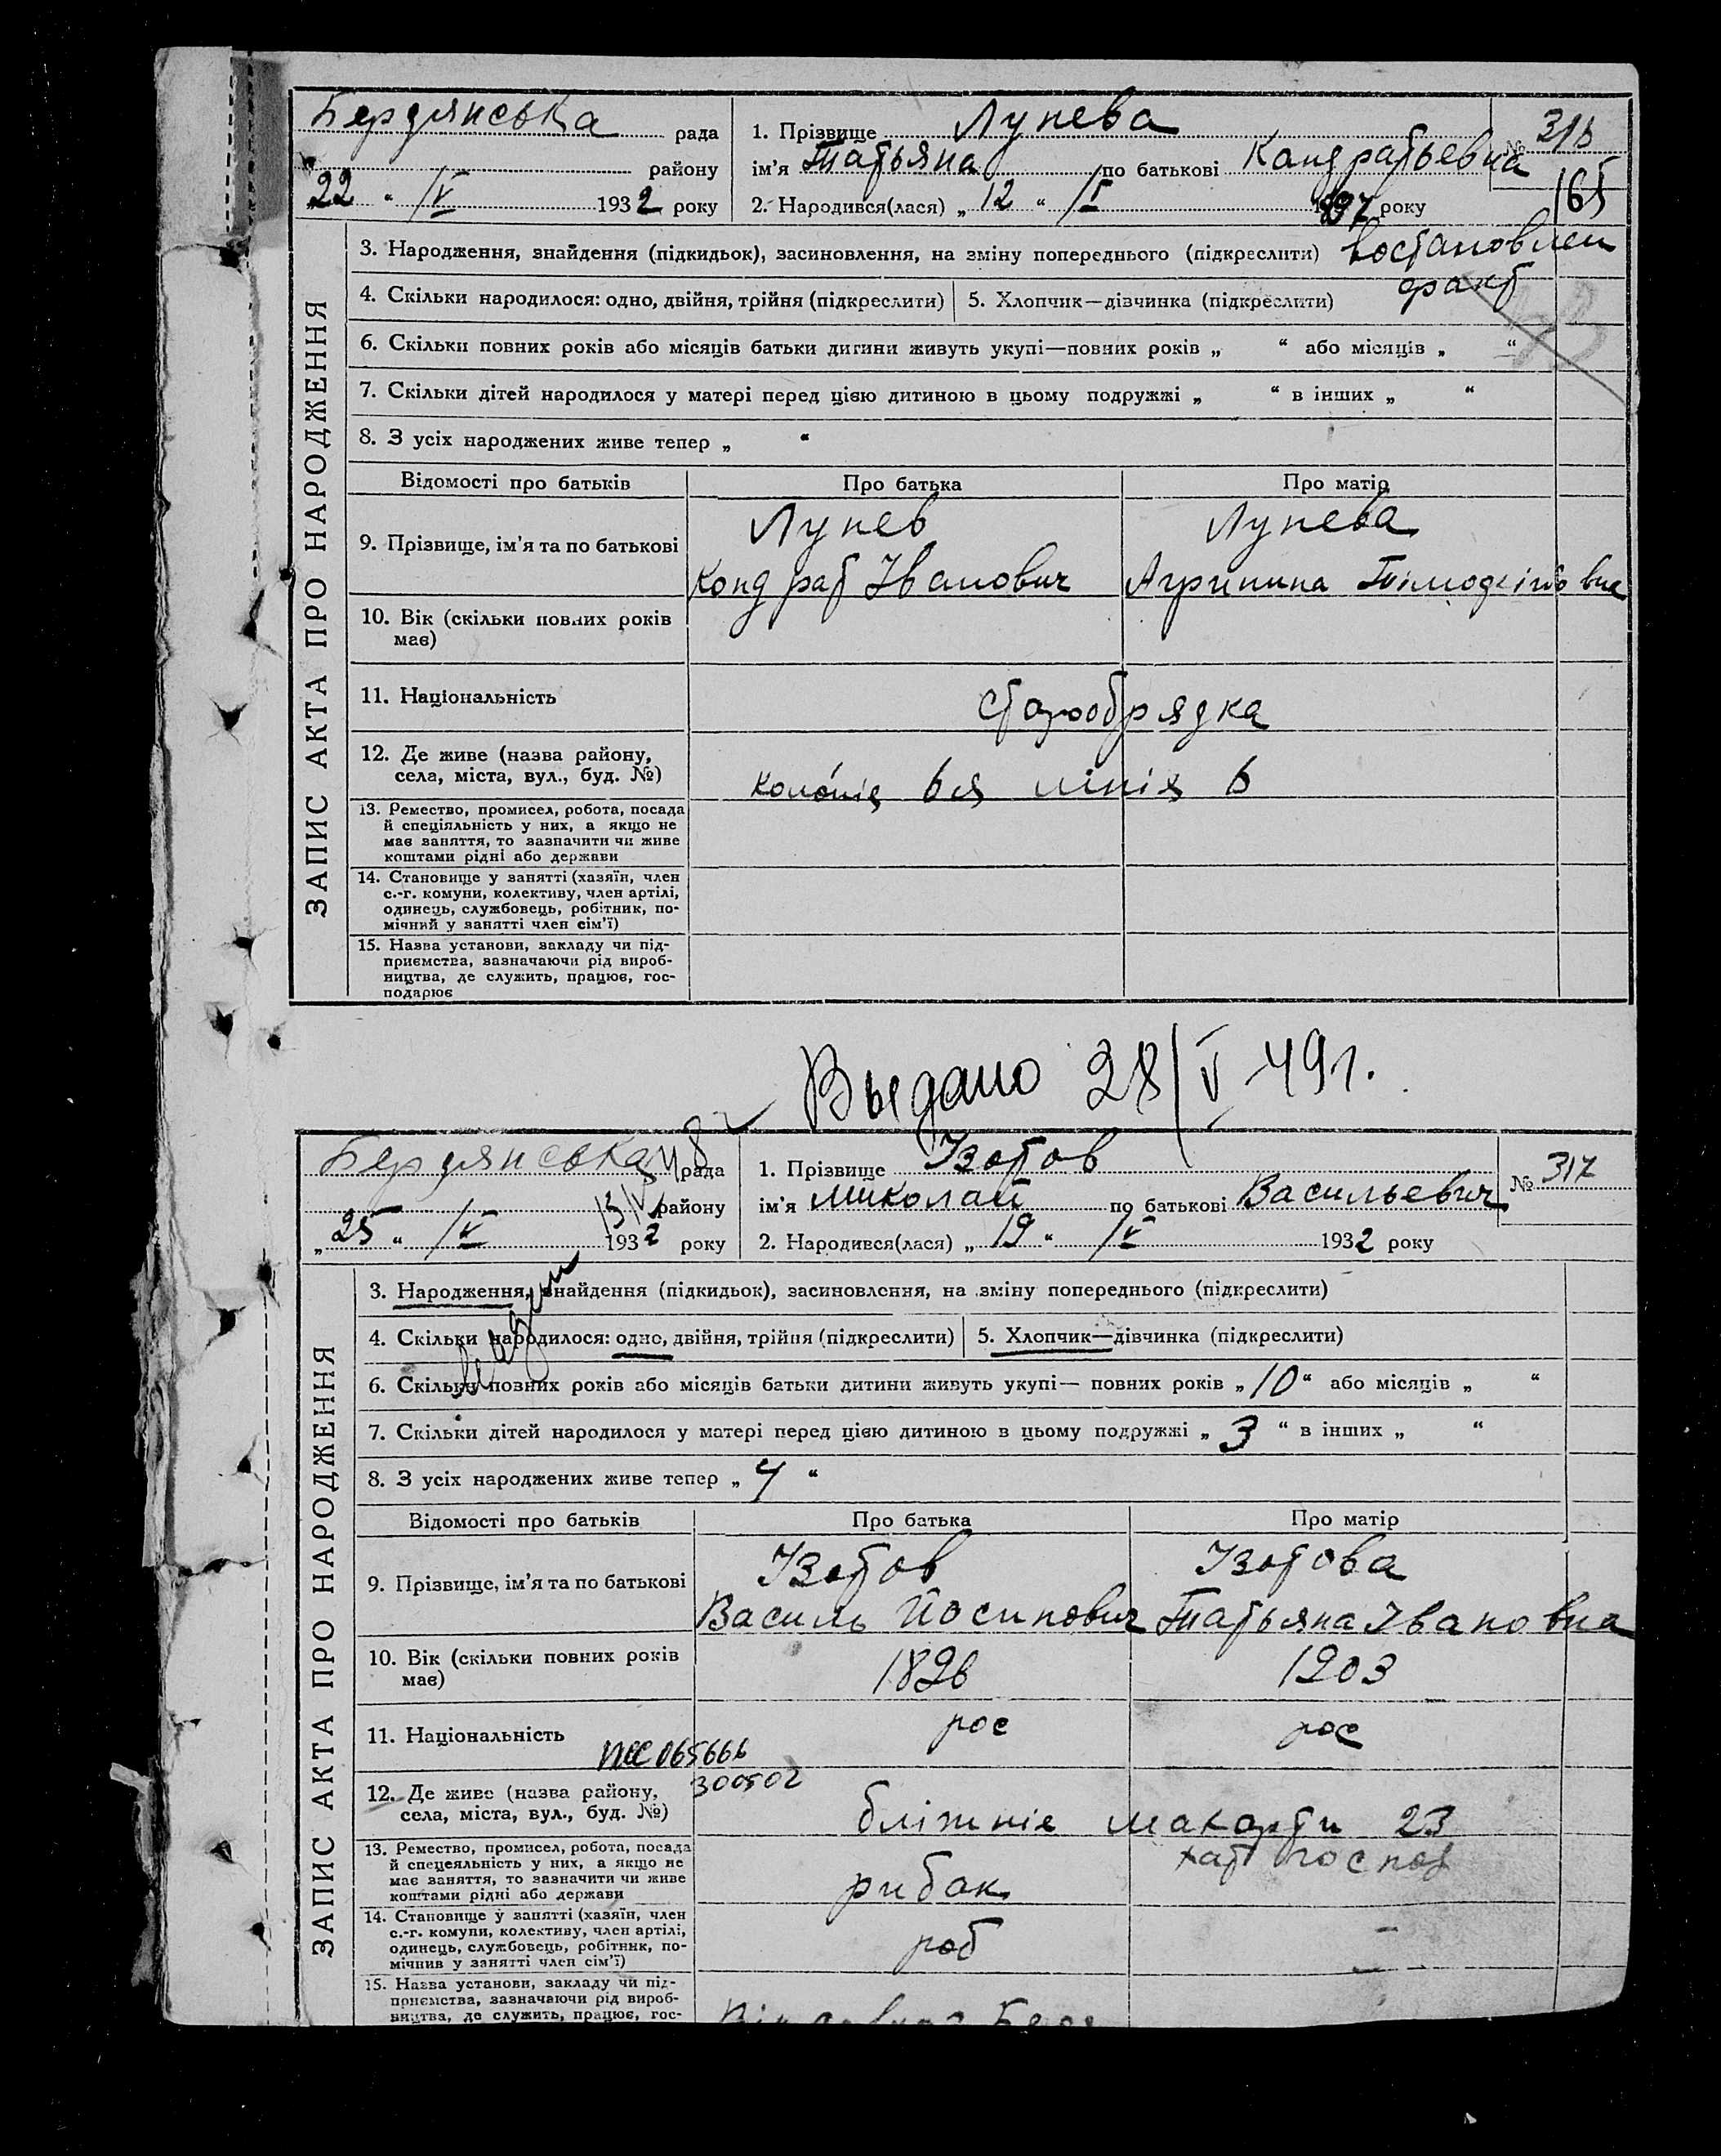 Бердянська рада
району
„22“ IV 1932 року
1. Прізвище Лунева
ім’я Татьяна по батькові Кондратьевна
2. Народився(лася) „12“ I 1897 року
№ 316
165
ЗАПИС АКТА ПРО НАРОДЖЕННЯ
3. Народження, знайдення (підкидьок), засиновлення, на зміну попереднього (підкреслити) востановлен
факт
4. Скільки народилося: одно, двійня, трійня (підкреслити) 5. Хлопчик—дівчинка (підкреслити)
6. Скільки повних років або місяців батьки дитини живуть укупі—повних років „ “ або місяців „ “
7. Скільки дітей народилося у матері перед цією дитиною в цьому подружжі „ “ в інших „ “
8. З усіх народжених живе тепер „ “
Відомості про батьків Про батька Про матір
9. Прізвище, ім’я та по батькові
Лунев
Кондрат Іванович
Лунева
Агрипина Тімофеі́вна
10. Вік (скільки повних років
має)
11. Національність старообрядка
12. Де живе (назва району,
села, міста, вул., буд. №)
колонія 6я лінія 6
13. Ремество, промисел, робота, посада
й спеціяльність у них, а якщо не
має заняття, то зазначити чи живе
коштами рідні або держави
14. Становище у занятті (хазяїн, член
с.-г. комуни, колективу, член артілі,
одинець, службовець, робітник, по-
мічний у занятті член сім’ї)
15. Назва установи, закладу чи під-
приємства, зазначаючи рід вироб-
ництва, де служить, працює, гос-
подарює
Выдано 28/V-49г.
Бердянська рада
району
„25“ IV 1932 року
1. Прізвище Ізотов
ім’я Миколай по батькові Васильевич
2. Народився(лася) „19“ IV 1932 року
№ 317
ЗАПИС АКТА ПРО НАРОДЖЕННЯ
3. Народження, знайдення (підкидьок), засиновлення, на зміну попереднього (підкреслити)
4. Скільки народилося: одно, двійня, трійня (підкреслити) 5. Хлопчик—дівчинка (підкреслити)
6. Скільки повних років або місяців батьки дитини живуть укупі— повних років „10“ або місяців „ “
7. Скільки дітей народилося у матері перед цією дитиною в цьому подружжі „3“ в інших „ “
8. З усіх народжених живе тепер „4“
Відомості про батьків Про батька Про матір
9. Прізвище, ім’я та по батькові
Ізотов
Василь Йосипович
Ізотова
Татьяна Івановна
10. Вік (скільки повних років
має)
1896 1903
11. Національність рос рос
065666
300502
12. Де живе (назва району,
села, міста, вул., буд. №)
бліжніе макорти 23
13. Ремество, промисел, робота, посада
й спецеяльність у них, а якщо не
має заняття, то зазначити чи живе
коштами рідні або держави
рибак
хат господ
14. Становище у занятті (хазяїн, член
с.-г. комуни, колективу, член артілі,
одинець, службовець, робітник, по-
мічнив у занятті член сім’ї)
роб –
15. Назва установи, закладу чи під-
приємства, зазначаючи рід вироб-
ництва, де служить, працює, гос-